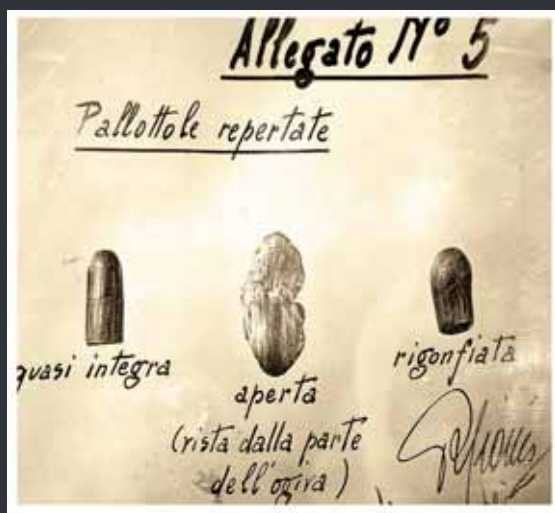 Allegato N° 5
Pallottole repertate
quasi integra
aperta
(vista dalla parte
dell'ogiva)
rigonfiata